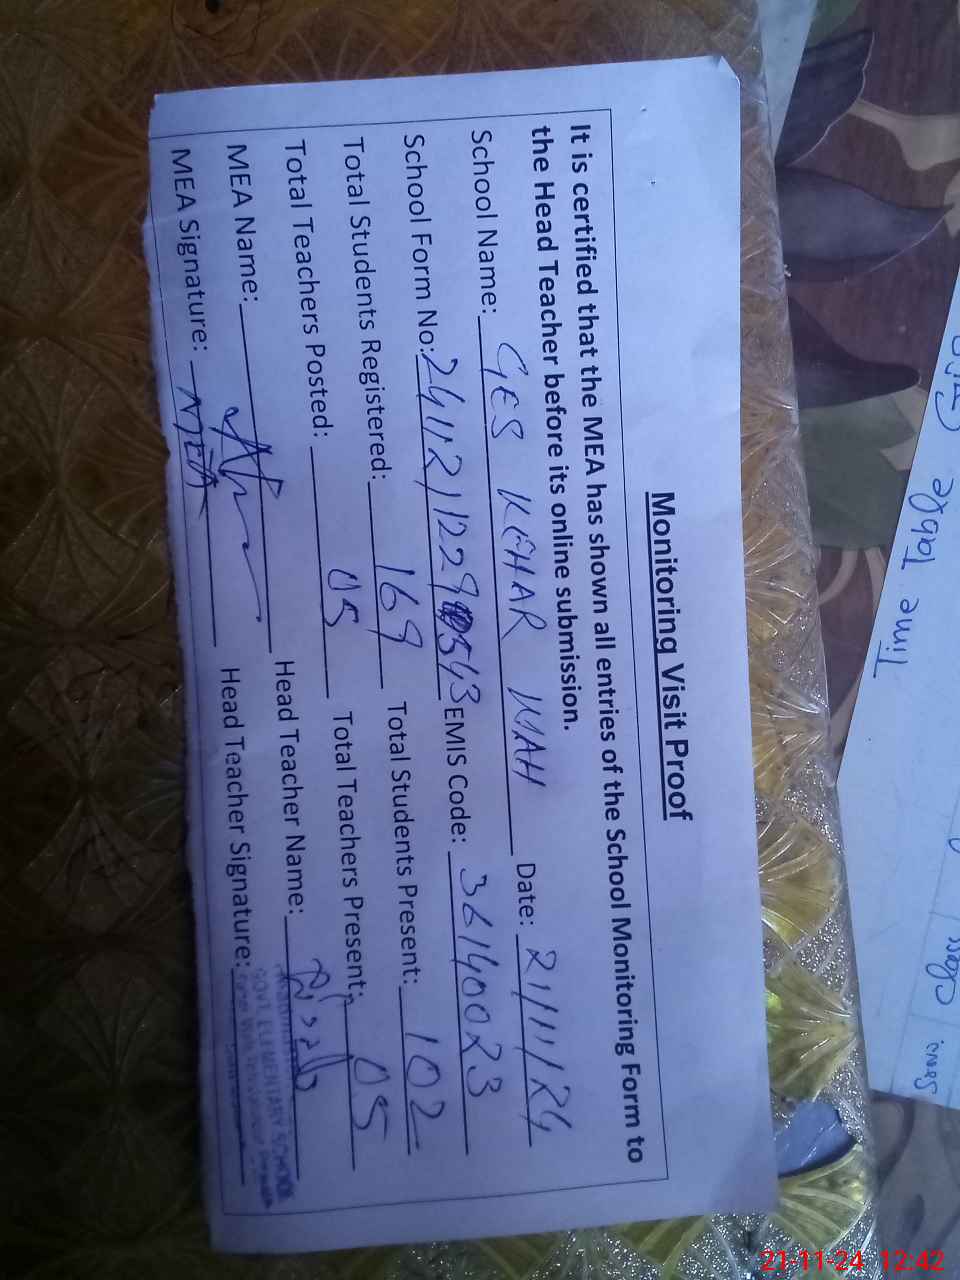 Monitoring Visit Proof
It is certified that the MEA has shown all entries of the School Monitoring Form to
the Head Teacher before its online submission.
School Name: GES KEHAR WAH Date: 21/11/24
School Form No: EMIS Code: 36140023
Total Students Registered: 169 Total Students Present: 102
Total Teachers Posted: 05 Total Teachers Present: 05
MEA Name: Head Teacher Name:
MEA Signature: MEA Head Teacher Signature:
GOVT. ELEMENTARY SCHOOL
Time Table
21-11-24 12:42